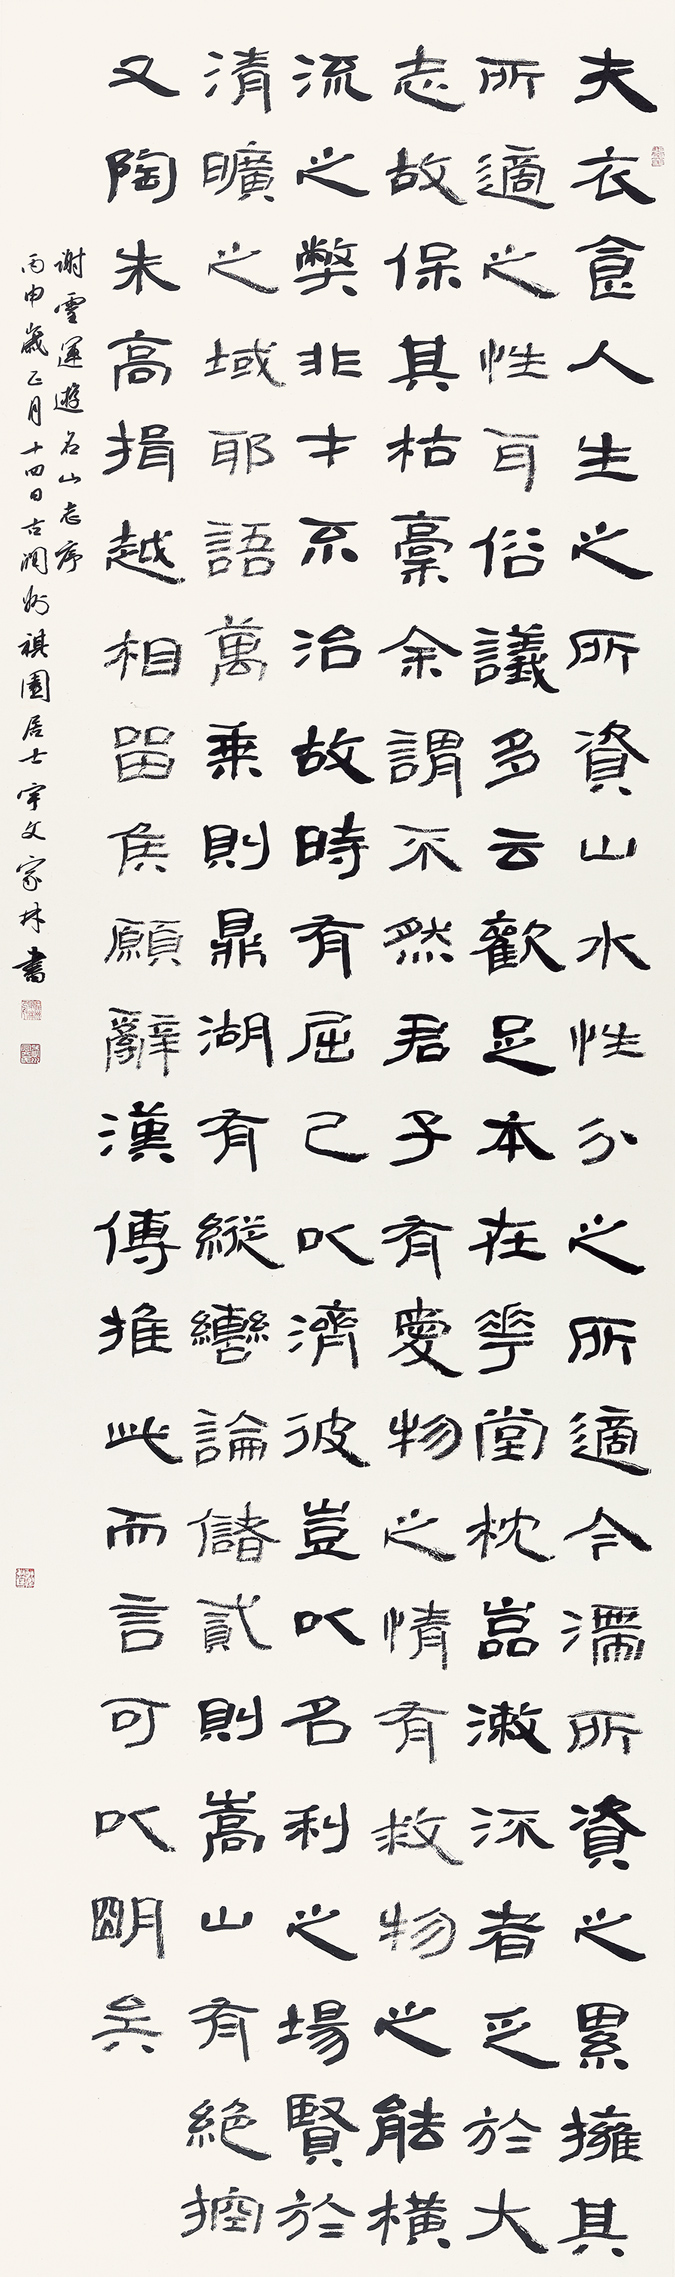 夫衣食人生之所資山水性分之所適今滯所資之累擁其
所適之性耳俗議多云歡足本在華堂枕嵓漱流者乏於大
志故保其枯槀余謂不然君子有愛物之情有救物之能橫
流之獘非才不治故時有屈己以濟彼豈以名利之場賢於
清曠之域耶語萬乗則鼎湖有縱轡論儲貳則嵩山有絶控
又陶朱高揖越相留侯願辭漢傅推此而言可以明矣
谢靈運遊名山志序
丙申歲正月十四日古潤州祺園居士宇文家林書